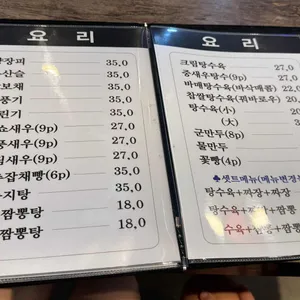 요 리
장피 35,0
산슬 35,0
보채 35,0
풍기 35,0
린기 35,0
쇼새우(9p) 27,0
풍새우(9p) 27,0
림새우(9p) 27,0
추잡채빵(6p) 35,0
가지탕 35,0
짬뽕탕 18,0
짬뽕탕 18,0
요 리
크림탕수육 27,0
중새우탕수(9p) 27,0
바매탕수육(바삭매콤) 22,0
찹쌀탕수육(꿔바로우) 20,
탕수육(小)
(大)
군만두(8p)
물만두
꽃빵(4p)
♣셋트메뉴(메뉴변경
탕수육+짜장+짜장
탕수육+짜장+짬뽕
수육+짬뽕+짬뽕